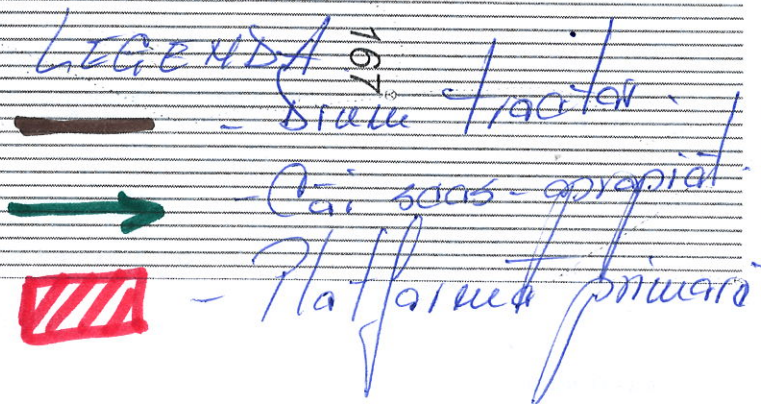 LEGENDA
167
- Drum tractor.
- Căi scos-apropiat.
- Platformă primară